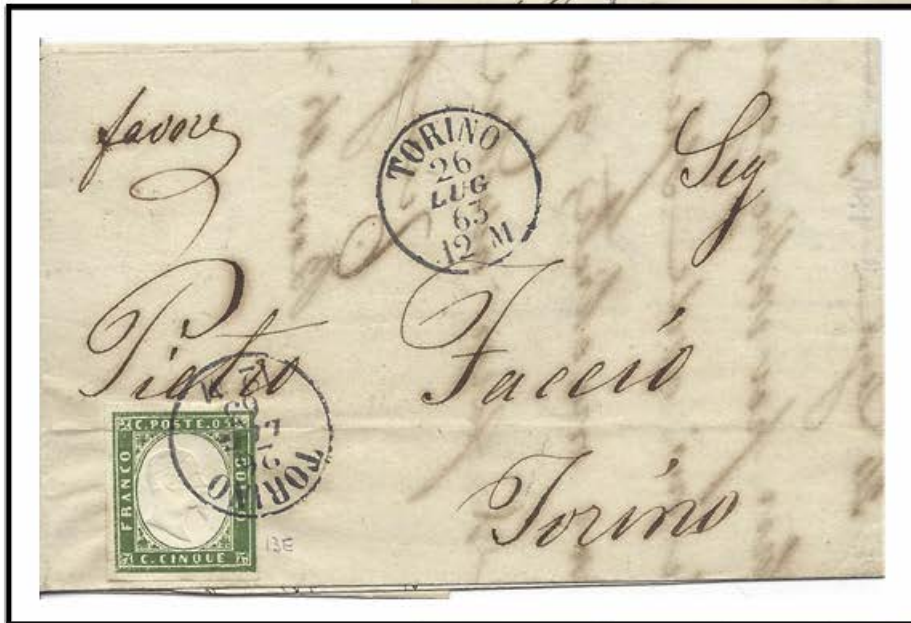 favore
Sig
TORINO
26
LUG
63
12 M
Pietro Faccio
Torino
TORINO
26
LUG
63
12 M
C. POSTE. 05
FRANCO
BOLLO
C. CINQUE
13E